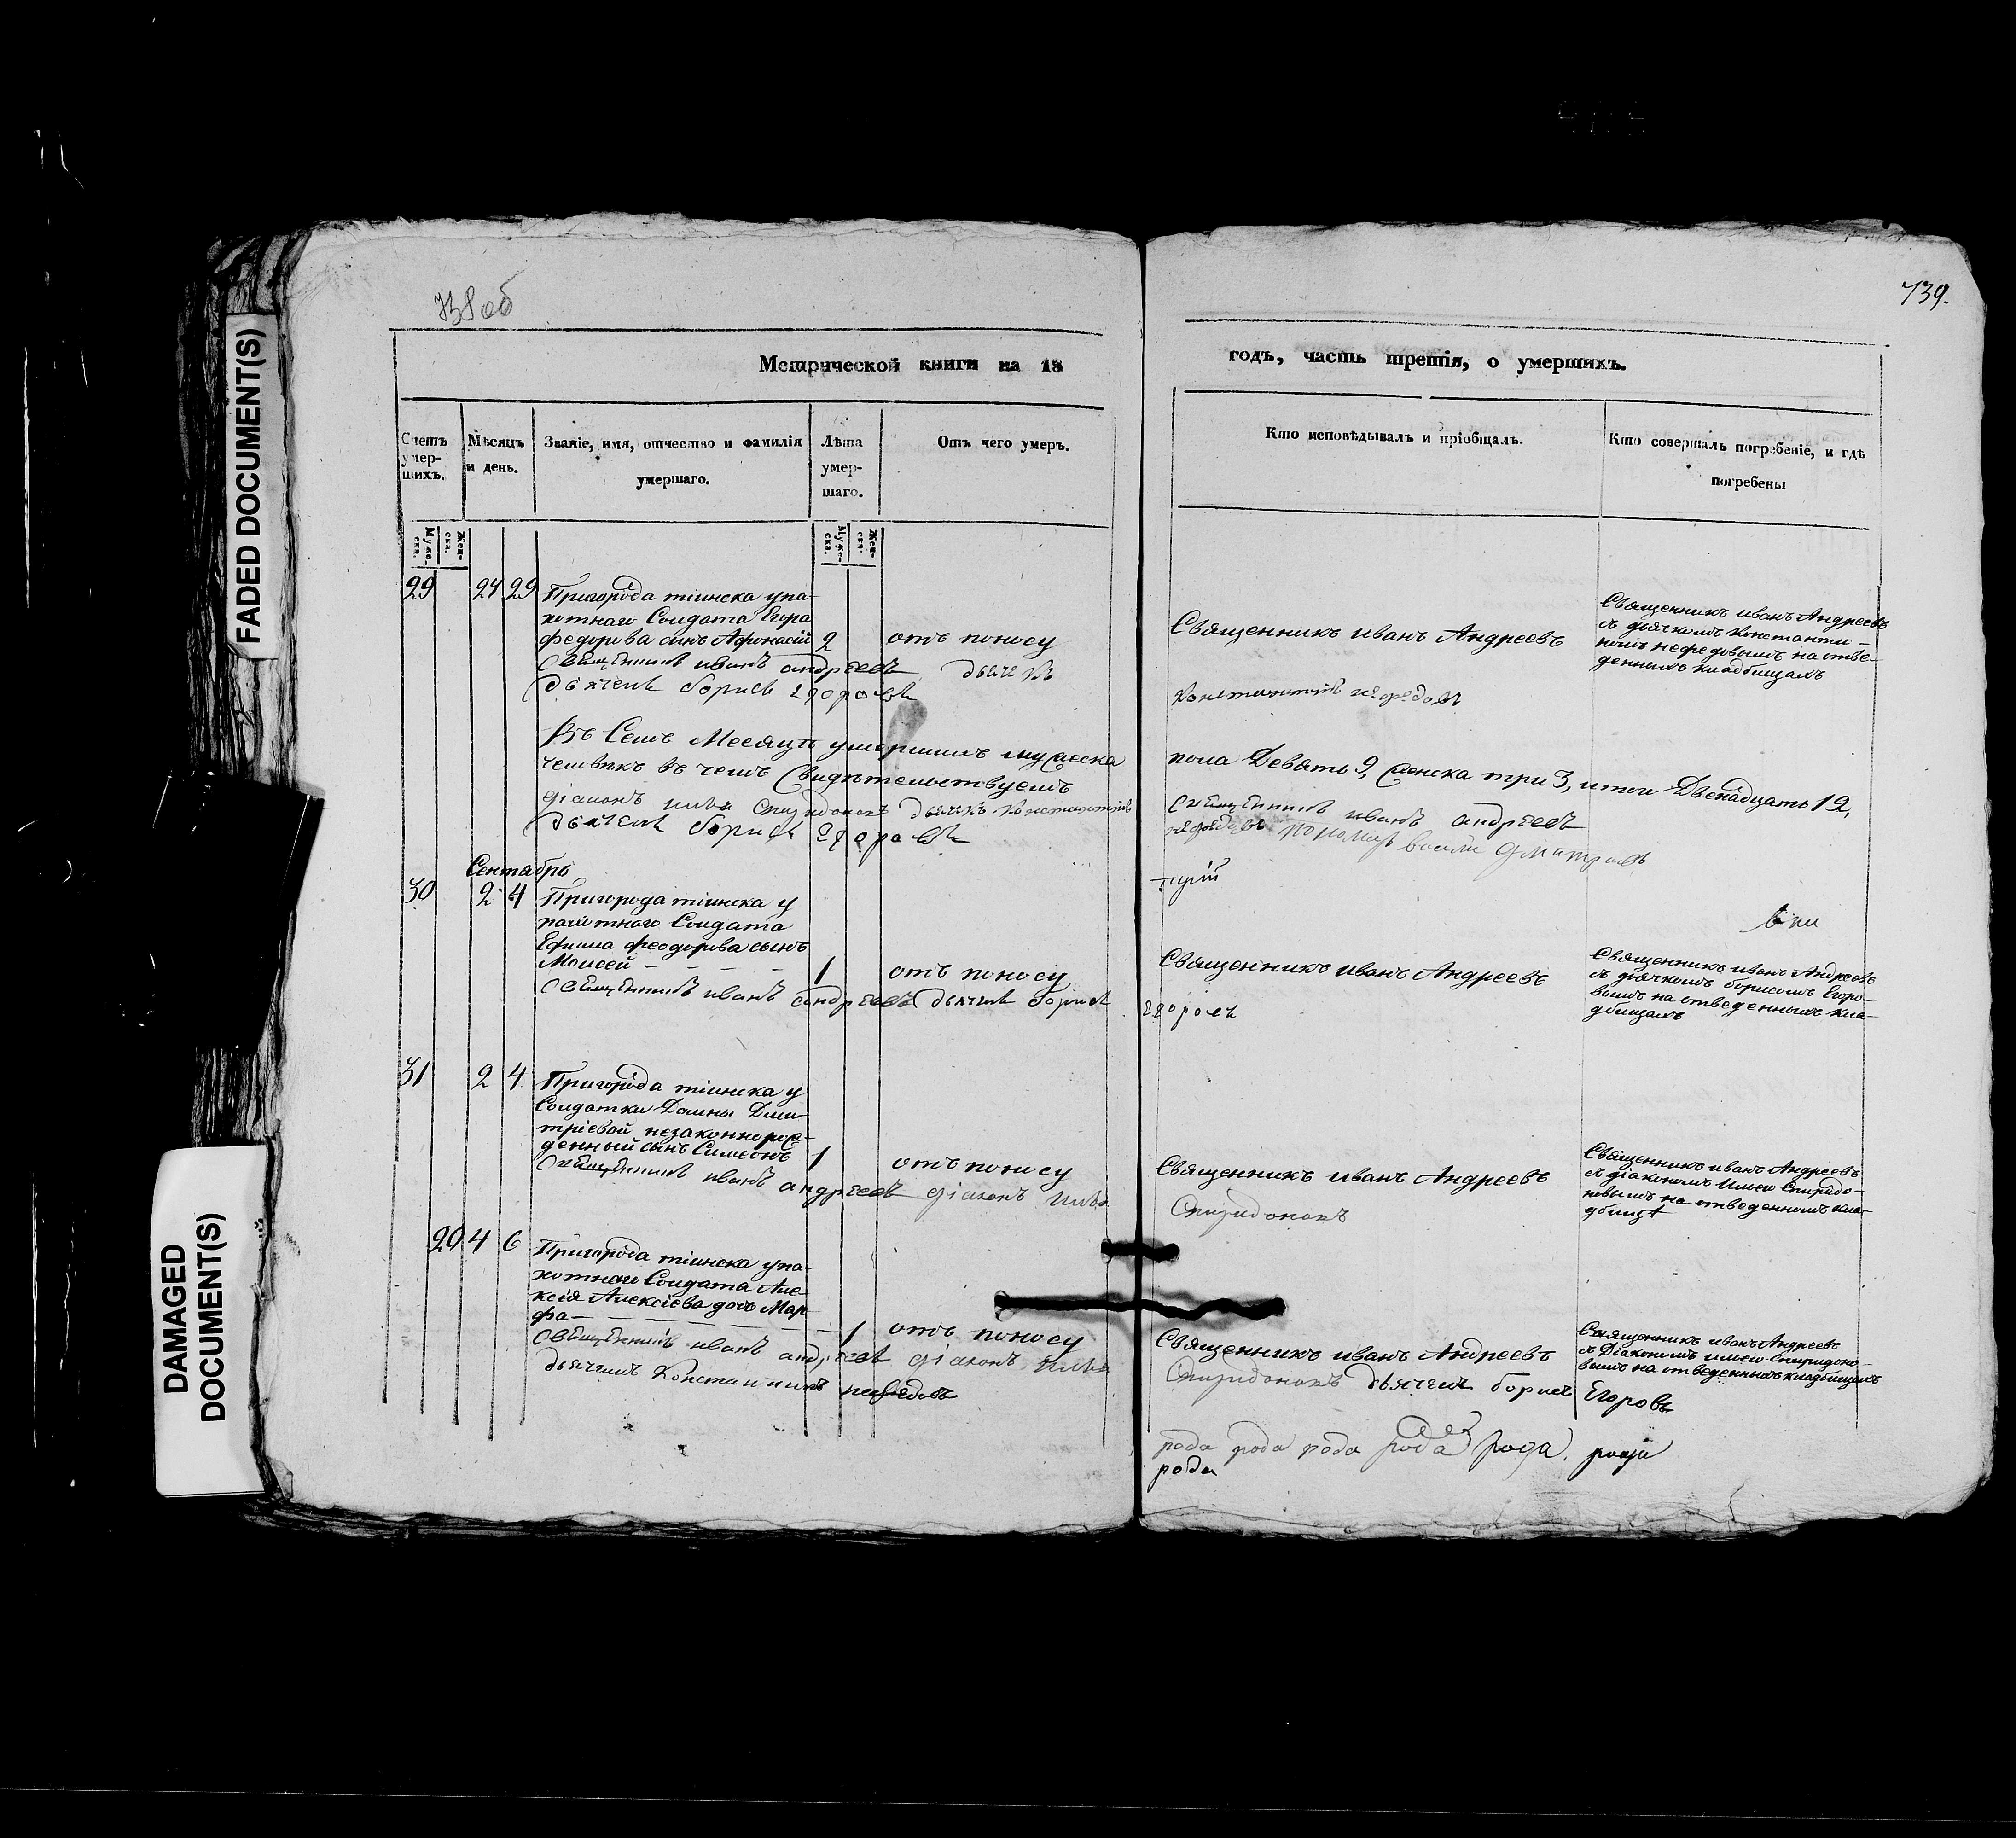 FADED DOCUMENT(S)
DAMAGED
DOCUMENT(S)
738 об
739.
Метрической книги на 18
годъ, часть третія, о умершихъ.
Счетъ
умер-
шихъ.
Мѣсяцъ
и день.
Званіе, имя, отчество и фамилія
умершаго.
Лѣта
умер-
шаго.
Отъ чего умеръ.
Кто исповѣдывалъ и пріобщалъ.
Кто совершалъ погребеніе, и гдѣ
погребены
Муже-
ска.
Жен-
ска.
Муже-
ска.
Жен-
ска.
29 27 29
Пригорода тіинска у па-
хотнаго Солдата Егора
федорова сынъ Афонасій 2 отъ поносу
Священникъ иванъ андреевъ дьячекъ
дьячекъ борисъ егоровъ
Священникъ иванъ Андреевъ
константинъ нефедовъ
Священникъ иванъ Андреевъ
съ дьячкомъ константи-
номъ нефедовымъ на отве-
денныхъ кладбищахъ
Въ Семъ Месяце умершихъ мужеска
человекъ въ чемъ Свидетельствуемъ
діаконъ илья спиридоновъ дьячекъ константинъ
дьячекъ борисъ егоровъ
пола Девять 9, женска три 3, итого Двенадцать 12,
священникъ иванъ андреевъ
нефедовъ пономарь василий дмитриевъ
Сентябрь
30 2 4
Пригорода тіинска у
пахотнаго Солдата
Ефима феодорова сынъ
Моисей - - - - 1 отъ поносу
Священникъ иванъ андреевъ дьячекъ борисъ
Священникъ иванъ Андреевъ
егоровъ
Священникъ иванъ Андреевъ
съ дьячкомъ борисомъ Егоро-
вымъ на отведенныхъ кла-
дбищахъ
31 2 4
Пригорода тіинска у
Солдатки Домны Дми-
тріевой незаконнорож-
денный сынъ Симеонъ 1 отъ поносу
Священникъ иванъ андреевъ діаконъ илья
Священникъ иванъ Андреевъ
Спиридоновъ
Священникъ иванъ Андреевъ
съ діакономъ Ильею Спиридо-
новымъ на отведенномъ кла-
дбище
20 4 6
Пригорода тіинска у па-
хотнаго Солдата Але-
ксія Алексіева дочь Мар-
фа - - - - 1 отъ поносу
Священникъ иванъ андреевъ діаконъ илья
дьячекъ Константинъ нефедовъ
Священникъ иванъ Андреевъ
Спиридоновъ дьячекъ борисъ Егоровъ
Священникъ иванъ Андреевъ
съ Діакономъ ильею спиридоно-
вымъ на отведенныхъ кладбищахъ
рода рода рода рода рода. рода
рода